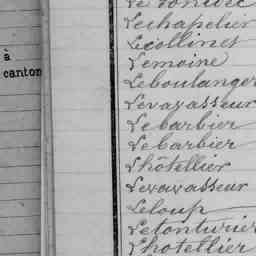 à
canton
Lechapelier
Lecollinet
Lemoine
Leboulanger
Levavasseur
Lebarbier
Lebarbier
Lhôtellier
Levavasseur
Leloup
Letonturier
Lhotellier